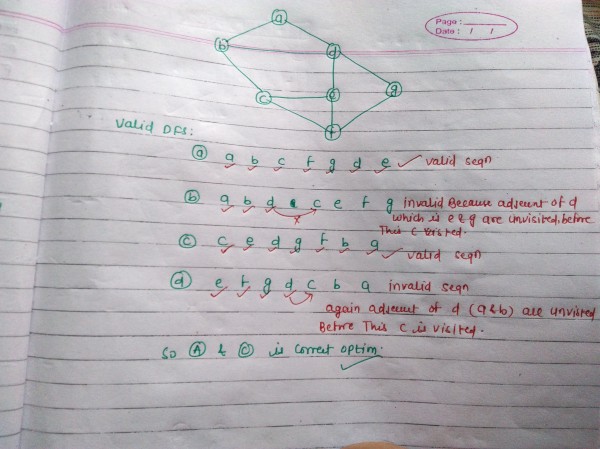 Page :
Date : / /
a
b
d
g
c
e
f
Valid DFS:
(a) a b c f g d e valid seqn
(b) a b d c e f g invalid Because adjucent of d
which is e & g are unvisited, before
This c visited.
x
(c) c e d g f b a valid seqn
(d) e f g d c b a invalid seqn
again adjucent of d (a & b) are unvisited
Before This c is visited.
So (A) & (C) is correct option.